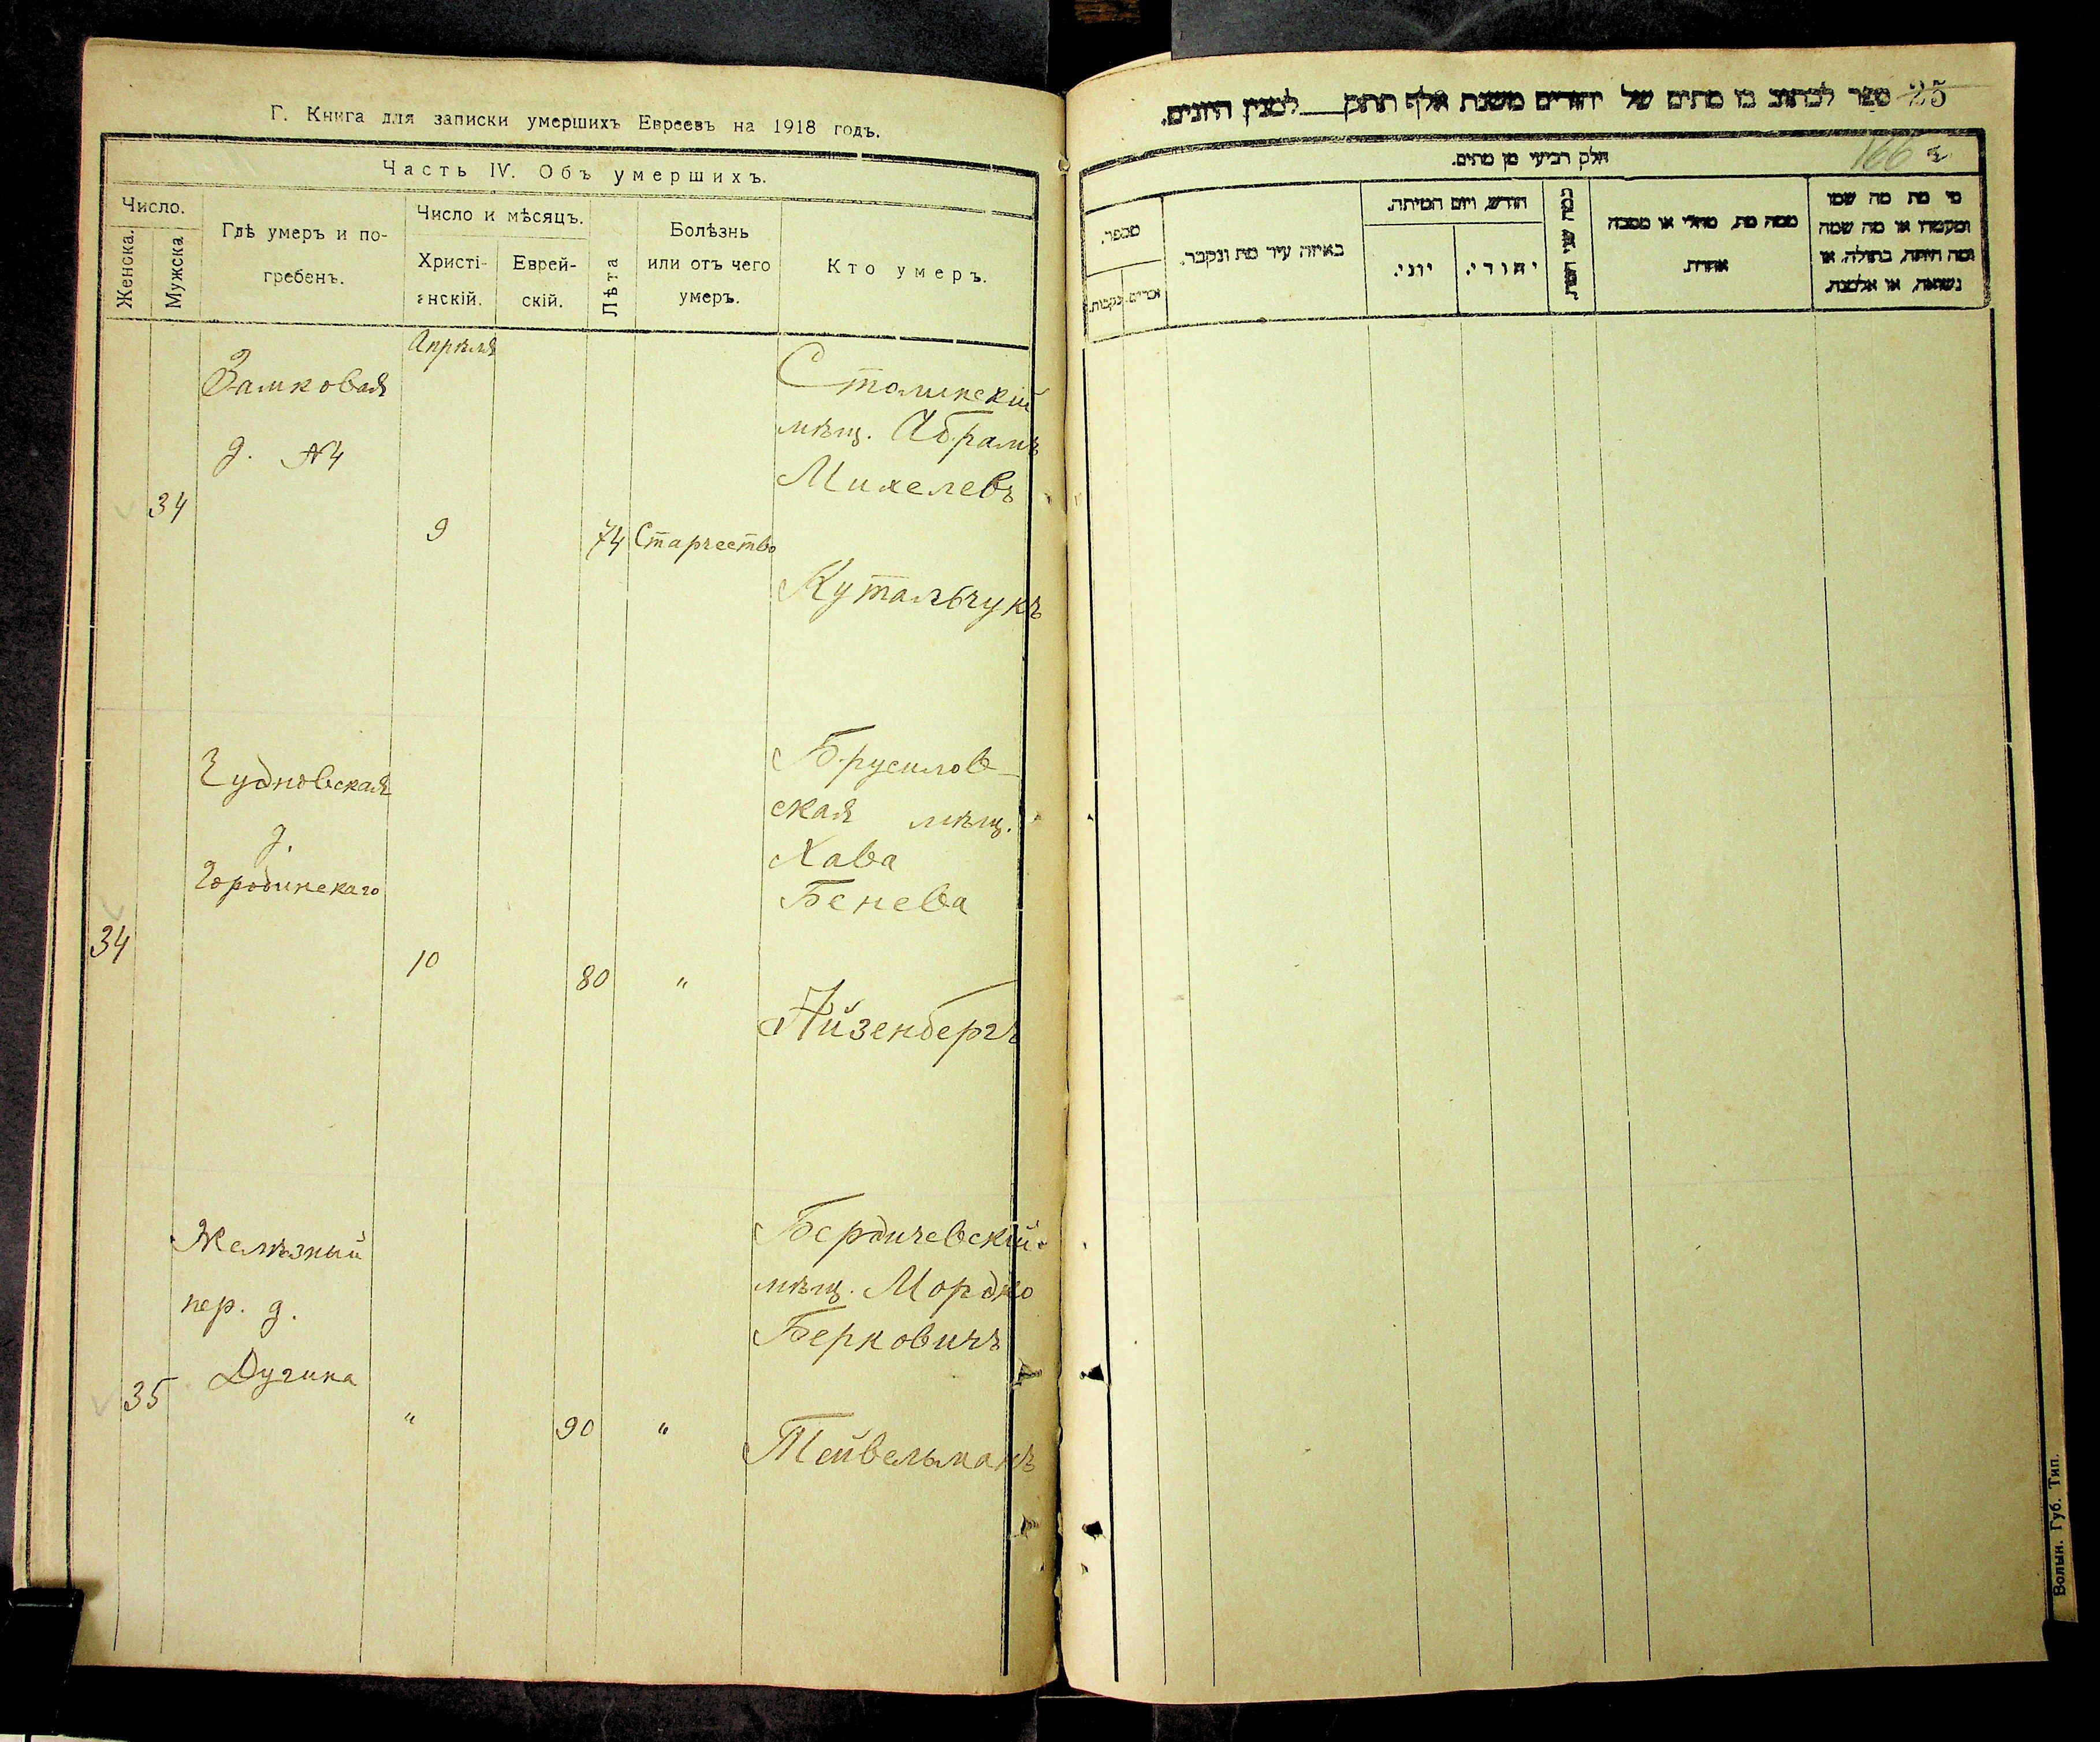 Г. Книга для записки умершихъ Евреевъ на 1918 годъ.
Часть IV. Объ умершихъ.
Число.
Женска.
Мужска
Гдѣ умеръ и по-
гребенъ.
Число и мѣсяцъ.
Христі-
анскій.
Еврей-
скій.
Лѣта
Болѣзнь
или отъ чего
умеръ.
Кто умеръ.
34
Замковая
д. №4
Апрѣля
9
74
Старчество
мѣщ. Абрамъ
Михелевъ
Кутальчукъ
34
Чудновская
д.
Городинскаго
10
80
"
Брусилов-
ская мѣщ.
Хава
Бенева
Айзенбергъ
35
Желѣзный
пер. д.
"
90
"
Бердичевскій
мѣщ. Мордко
Берковичъ
Тейвельманъ
25
ספר לכתוב בו מתים של יהודים משנת אלף תתק למנין היונים.
166
חלק רביעי מן מתים.
מספר.
זכרים.
נקבות.
באיזה עיר מת ונקבר.
חודש, ויום המיתה.
יוני.
יהודי.
ממה מת, מחלי או מסבה
אחרת.
מי מת מה שמו
ומה היתה, בתולה, או
נשואה, או אלמנה.
Волын. Губ. Тип.